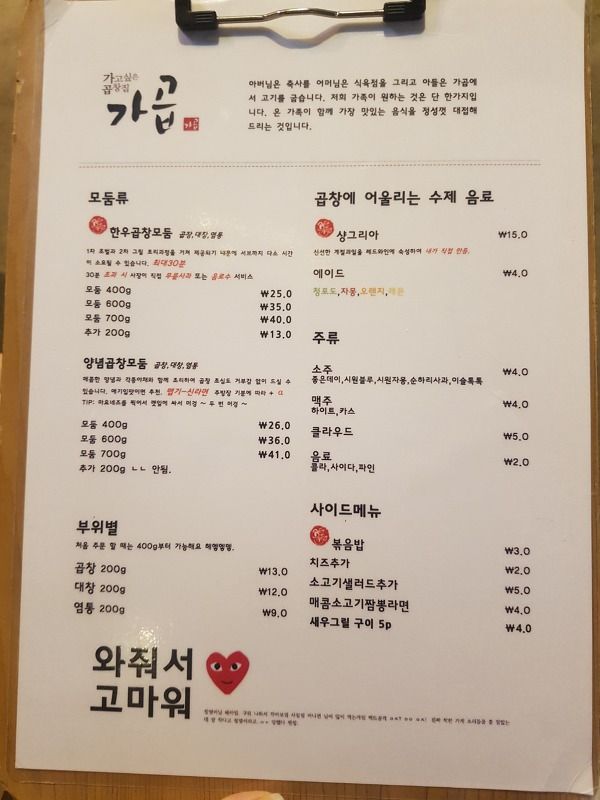 가고싶은
곱창집
가곱
가곱
아버님은 축사를 어머님은 식육점을 그리고 아들은 가곱에
서 고기를 굽습니다. 저희 가족이 원하는 것은 단 한가지입
니다. 온 가족이 함께 가장 맛있는 음식을 정성껏 대접해
드리는 것입니다.
모둠류
한우곱창모둠 곱창,대창,염통
1차 초벌과 2차 그릴 조리과정을 거쳐 제공되기 때문에 서브까지 다소 시간
이 소요될 수 있습니다. 최대30분
30분 초과 시 사장이 직접 무릎사과 또는 음료수 서비스
모둠 400g ₩25.0
모둠 600g ₩35.0
모둠 700g ₩40.0
추가 200g ₩13.0
양념곱창모둠 곱창,대창,염통
매콤한 양념과 각종야채와 함께 조리하여 곱창 초심도 거부감 없이 드실 수
있습니다. 애기입맛이면 추천. 맵기-신라면 주방장 기분에 따라 + α
TIP: 마요네즈를 찍어서 깻잎에 싸서 이겅 ~ 두 번 이겅 ~
모둠 400g ₩26.0
모둠 600g ₩36.0
모둠 700g ₩41.0
추가 200g ㄴㄴ 안됨.
부위별
처음 주문 할 때는 400g부터 가능해요 헤헹헹헹.
곱창 200g ₩13.0
대창 200g ₩12.0
염통 200g ₩9.0
와줘서
고마워
곱창에 어울리는 수제 음료
샹그리아 ₩15.0
신선한 계절과일을 레드와인에 숙성하여 내가 직접 만듬.
에이드 ₩4.0
청포도,자몽,오렌지,레몬
주류
소주 ₩4.0
좋은데이,시원블루,시원자몽,순하리사과,이슬톡톡
맥주 ₩4.0
하이트,카스
클라우드 ₩5.0
음료 ₩2.0
콜라,사이다,파인
사이드메뉴
볶음밥 ₩3.0
치즈추가 ₩2.0
소고기샐러드추가 ₩5.0
매콤소고기짬뽕라면 ₩4.0
새우그릴 구이 5p ₩4.0